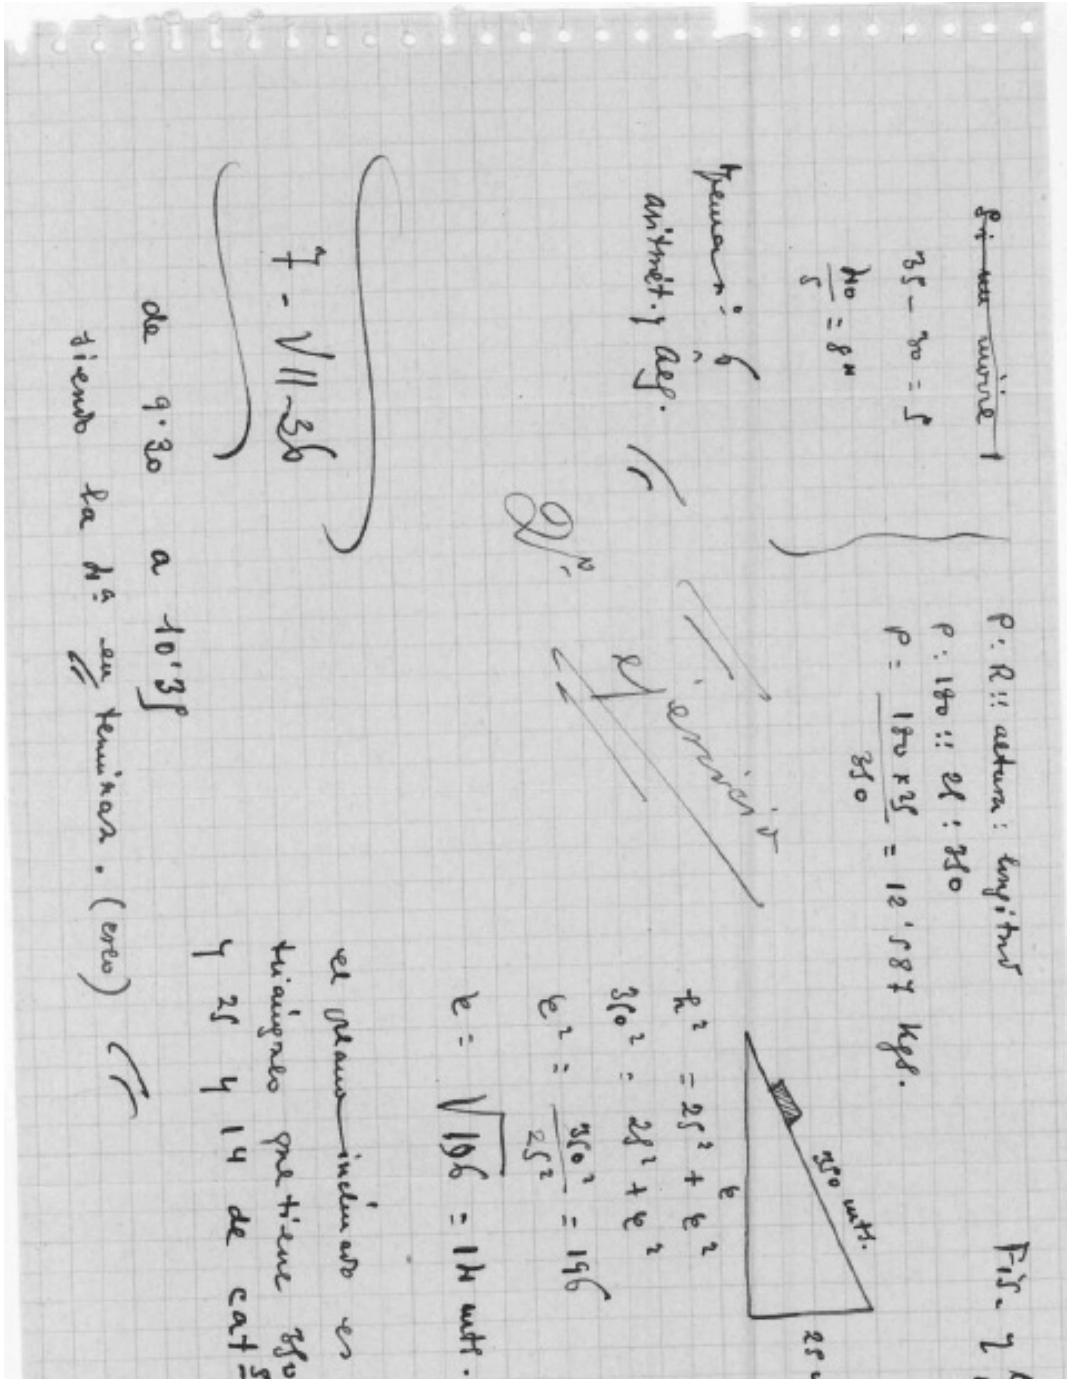 Fís. y
P : R :: altura : longitud
P : 180 :: 25 : 350
P = 180 x 25 / 350 = 12'587 Kgs.
350 mts.
25
h² = 25² + c²
350² = 25² + c²
c² = 350² / 25² = 196
c = √196 = 14 mts.
el plano inclinado es
triángulo que tiene 350
y 25 y 14 de cat
35 - 30 = 5
40 / 5 = 8
aritmét. y
ejercicio
7 - VII - 36
de 9'30 a 10'35
siendo la 4ª en terminar. (creo)